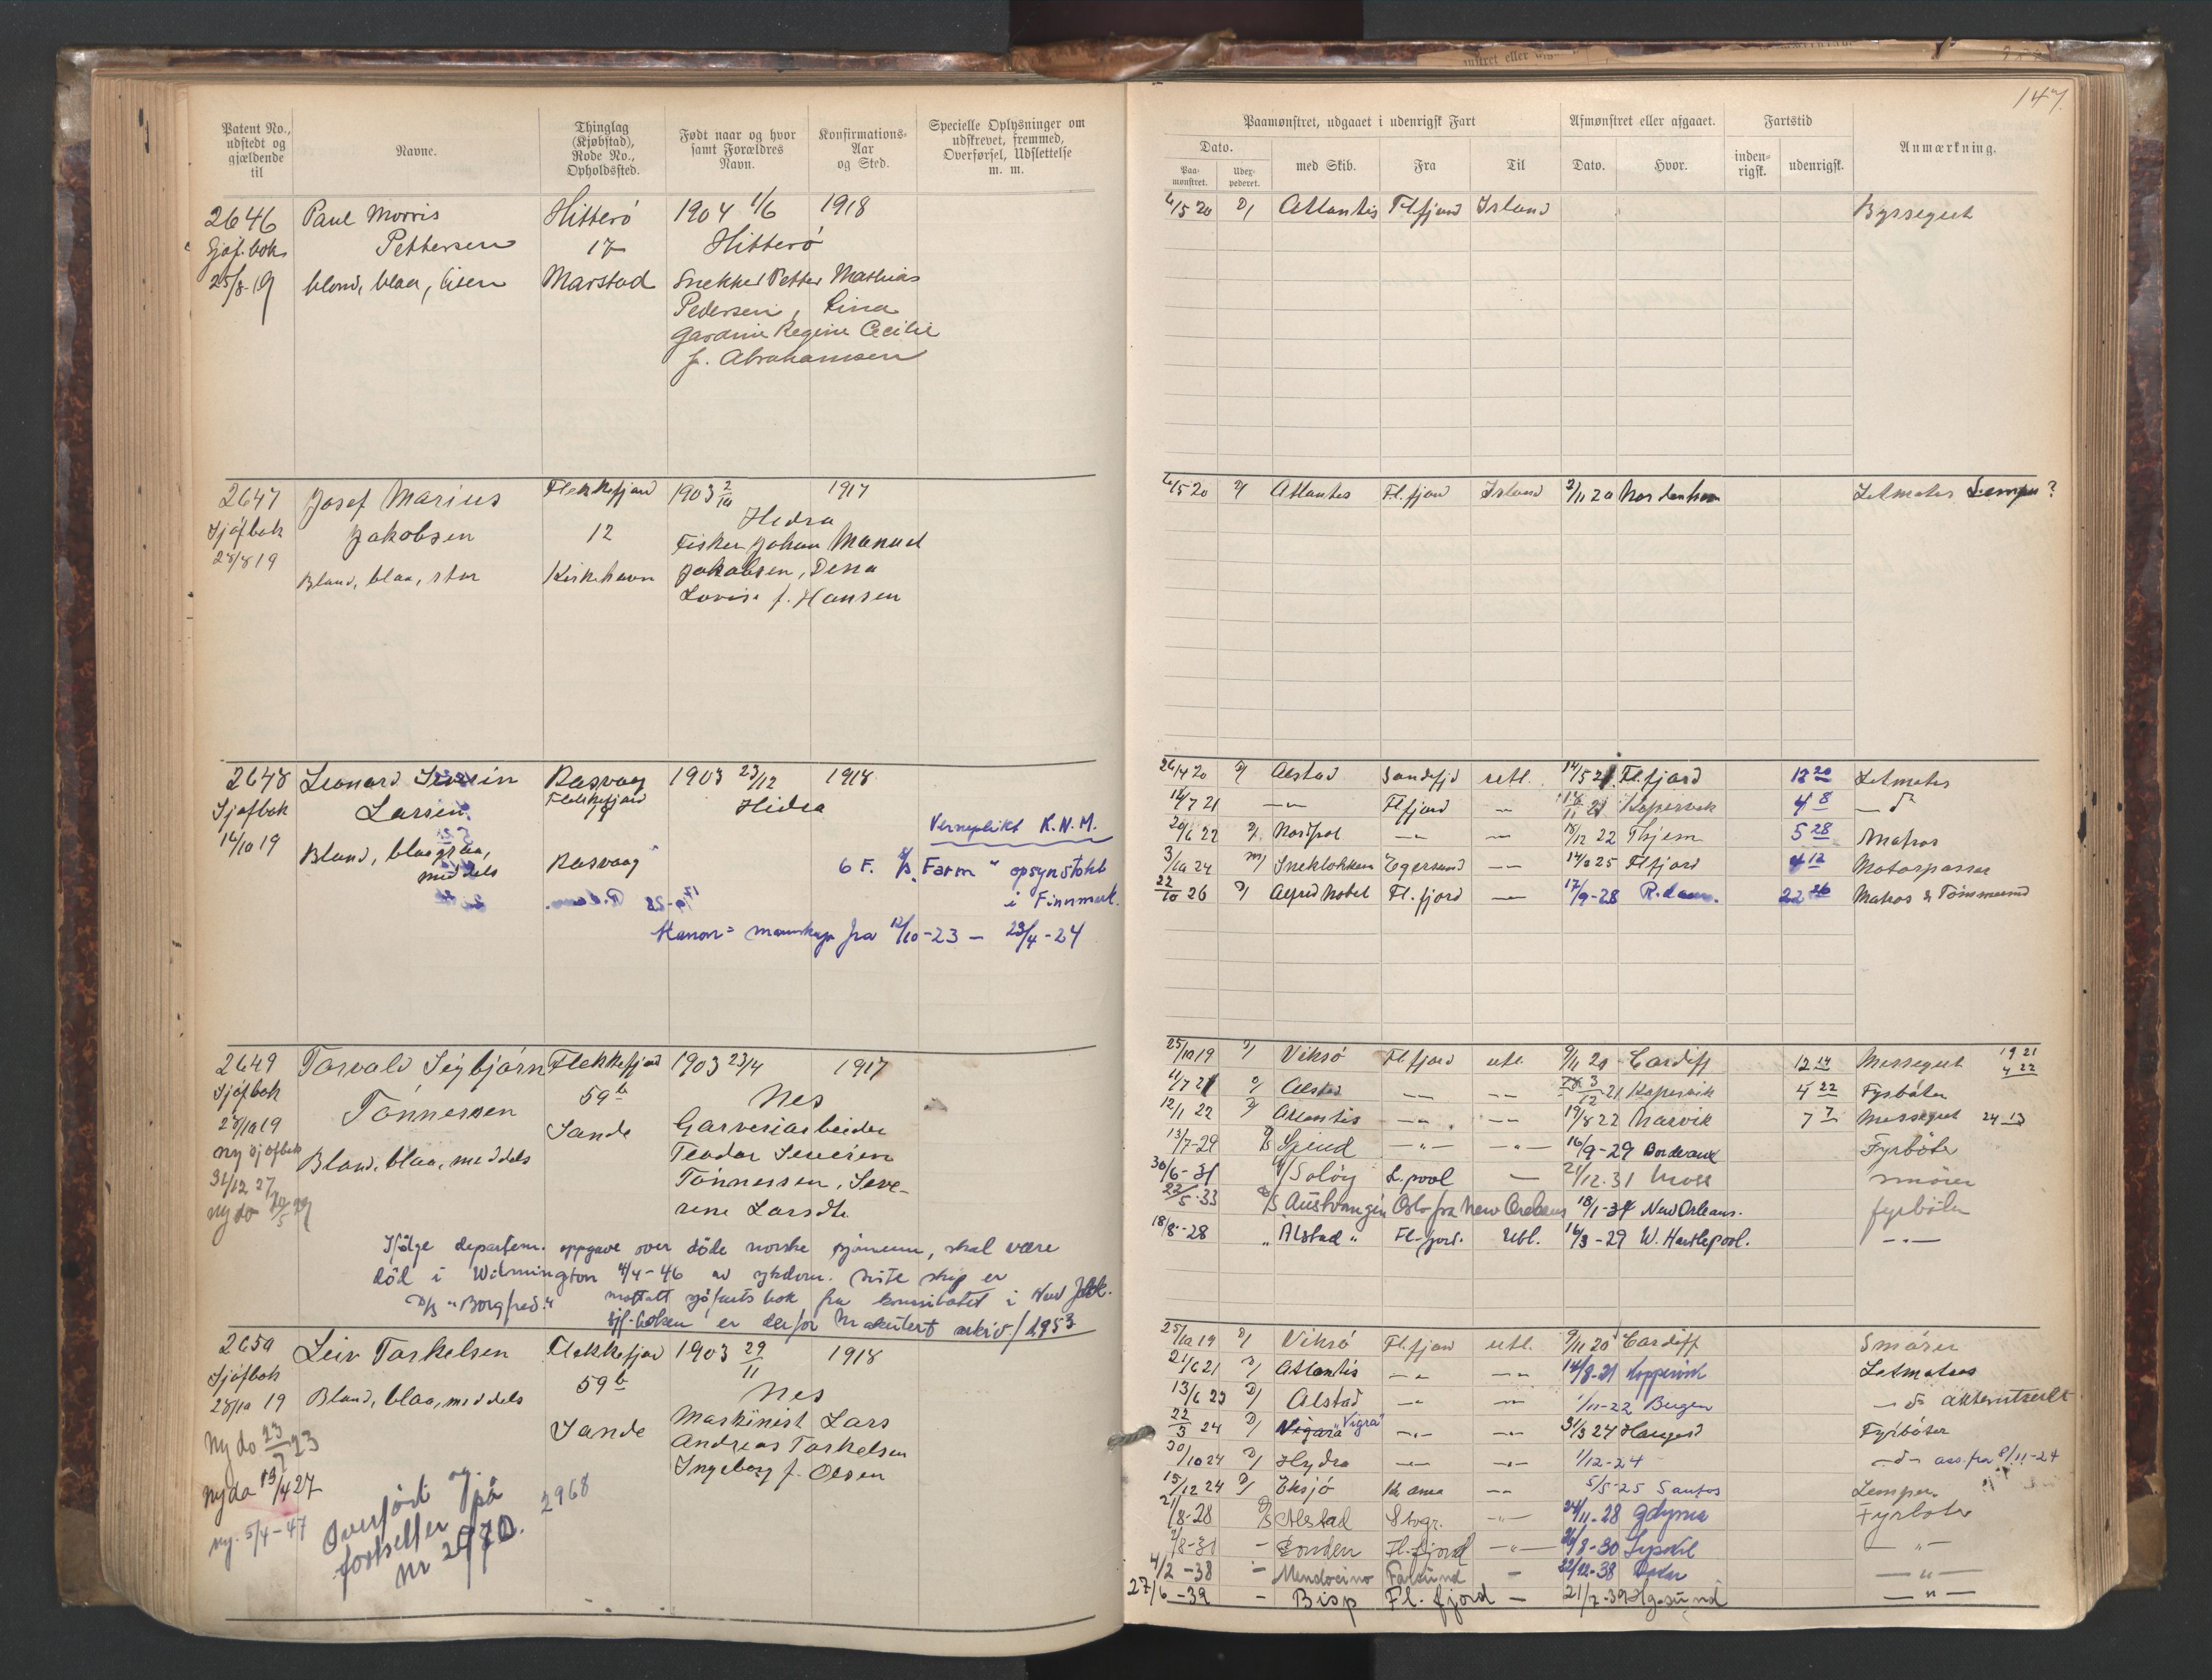 147.
Patent No., udstedt og gjældende til
Navne.
Thinglag (Kjøbstad), Rode No., Opholdssted.
Født naar og hvor samt Forældres Navn.
Konfirmations-Aar og Sted.
Specielle Oplysninger om udskrevet, fremmed, Overførsel, Udslettelse m. m.
Paamønstret, udgaaet i udenrigsk Fart
Afmønstret eller afgaaet.
Fartstid
Anmærkning.
Dato.
Paa-mønstret.
Udex-pederet.
med Skib.
Fra
Til
Dato.
Hvor.
inden-rigsk.
udenrigsk.
2646 Paul Morris Hitterö 1904 1/6 1918
Sjøf.bok Pettersen 17 Hitterö
25/8-19 blond, blaa, liten Marstad Snekker Petter Mathias
Pedersen, Lina
Gardine Regine Cecilie
f. Abrahamsen
6/5 20 D/ Atlantis Fl.fjord Island Byssegut
2647 Josef Marius Flekkefjord 1903 2/10 1917
Sjøfbok Jakobsen 12 Hidra
28/8 19 Fisker Johan Manuel
Blond, blaa, stor Kirkehavn Jakobsen, Dena
Lovise f. Hansen
6/5 20 D/ Atlantis Fl.fjord Island 2/11 20 Nordenham Letmatros Lemper?
2648 Leonard Severin Rasvaag 1903 23/12 1918
Sjøfbok Larsen Flekkefjord Hidra
14/10 19 Blond, blaagraa, middels Rasvaag
Verneplikt K.N.M.
6 F. "Farm" opsynstokt
i Finnmark.
Kanon- mannskap fra 12/10-23 — 23/4-24
26/4 20 D/ Alstad Sandefjd utl. 14/5 21 Fl.fjord 12 20 Letmatros
14/7 21 —"— Fl.fjord —"— 18/11 21 Kopervik 4 8 — d
20/6 22 D/ Nordpol —"— —"— 18/12 22 Thjem 5 28 Matros
3/10 24 M/ Sneklokken Egersund —"— 14/2 25 Fl.fjord 4 12 Motorpasser
22/10 26 D/ Alfred Nobel Fl.fjord — 17/9-28 R.dam. 22 26 Matros & Tømmermd
2649 Torvald Sigbjørn Flekkefjord 1903 23/4 1917
Sjøfbok Tönnessen 59 b Nes
28/10 19 Sande Garveriarbeider
ny sjøfbok Blond, blaa, middels Teodor Severin
31/12 27 Tönnessen, Seve-
ny do 22/5 29 rine Larsdtr.
Ifølge departem. oppgave over döde norske sjömenn, skal være
död i Wilmington 4/4-46 av sykdom. Siste skip er
D/S "Borgfred". mottatt sjöfartsbok fra konsulatet i New York.
sjf.boken er derfor makulert arkiv/1953
25/10 19 D/ Viksö Fl.fjord utl. 9/11 20 Cardiff 12 14 Messegut 19 21
4 22
11/7 21 D/ Alstad —"— —"— 3/12 21 Kopervik 4 22 Fyrböter
12/1 22 D/ Atlantis —"— —"— 19/8 22 Narvik 7 7 Messegut 24 13
13/7-29 D/S Spind —"— —"— 16/9-29 Bordeaux Fyrböter
30/6-31 Solöy L.pool — 21/12.31 Moss smörer
22/5-33 D/S Austvangen Oslo fra New Orleans 18/1-34 New Orleans. fyrböter
18/8-28 "Alstad" Fl.fjord. Utl. 16/3-29 W. Hartlepool. —"—
2650 Leiv Torkelsen Flekkefjord 1903 29/11 1918
Sjøfbok 59 b Nes
28/10 19 Blond, blaa, middels Sande Maskinist Lars
Ny do 23/7 23 Andreas Torkelsen
Ingeborg f. Olsen
Ny do 13/4 27
ny. 5/4-47
Overført og
fortsetter på
Nr 2970.
2968
25/10 19 D/ Viksö Fl.fjord utl. 9/11 20 Cardiff Smörer
21/6 21 D/ Atlantis —"— —"— 14/8-21 Koppervik Letmatros
13/6 23 D/ Alstad —"— —"— 1/11-22 Bergen — d
22/3 24 D/ Vigra "Vigra" —"— —"— 31/3 24 Haugesd Fyrböter
30/10 24 D/ Hydra —"— —"— 1/12-24 — d — ass. fra 8/11-24
15/12 24 D/ Eksjö —"— 5/5-25 Santos Lemper.
21/8-28 D/S Alstad Stvgr. —"— 24/11-28 Gdynia Fyrböter
Fl.fjord —"— 26/8-30 Lysekil —"—
4/2-38 — Mendocino Farsund — 22/12-38 —"—
27/6-39 — Bisp Fl.fjord — 21/7-39 Hgesund —"—